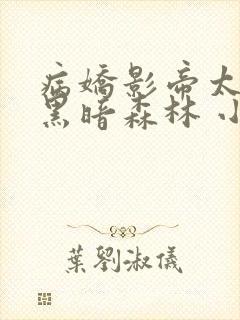 病嬌影帝太
黑暗森林 小
葉劉淑儀